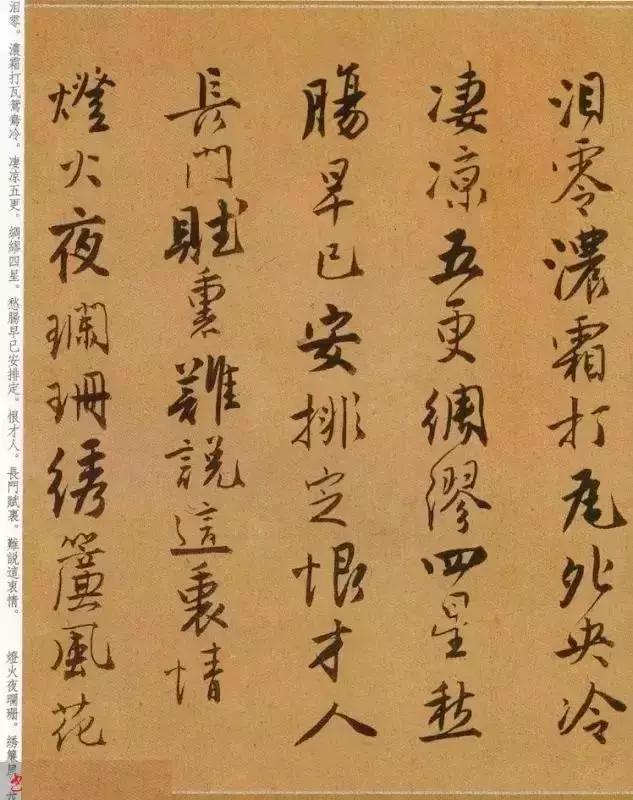 泪零濃霜打瓦夗央冷
凄凉五更綢繆四星愁
腸早已安排定恨才人
長門賦裏難説這衷情
燈火夜瓓珊綉簾風花
泪零。濃霜打瓦鴛鴦冷。凄凉五更。綢繆四星。愁腸早已安排定。恨才人。長門賦裏。難説這衷情。
燈火夜瓓珊。綉簾風